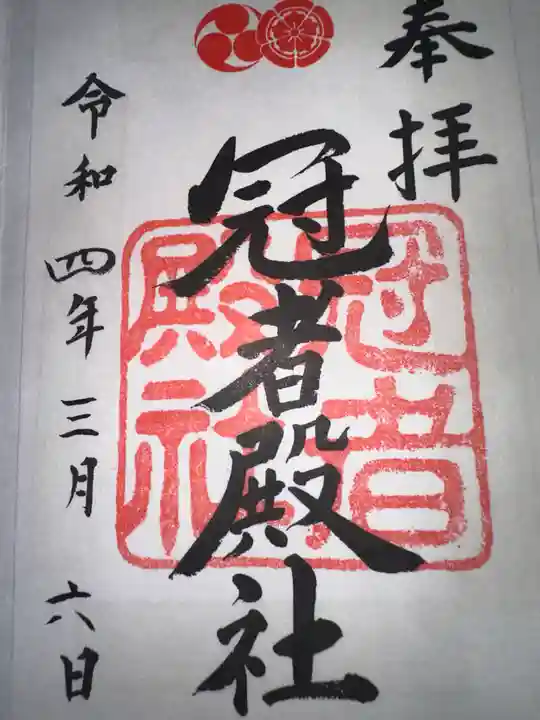 奉拝
冠者殿社
冠者
殿社
令和四年三月六日